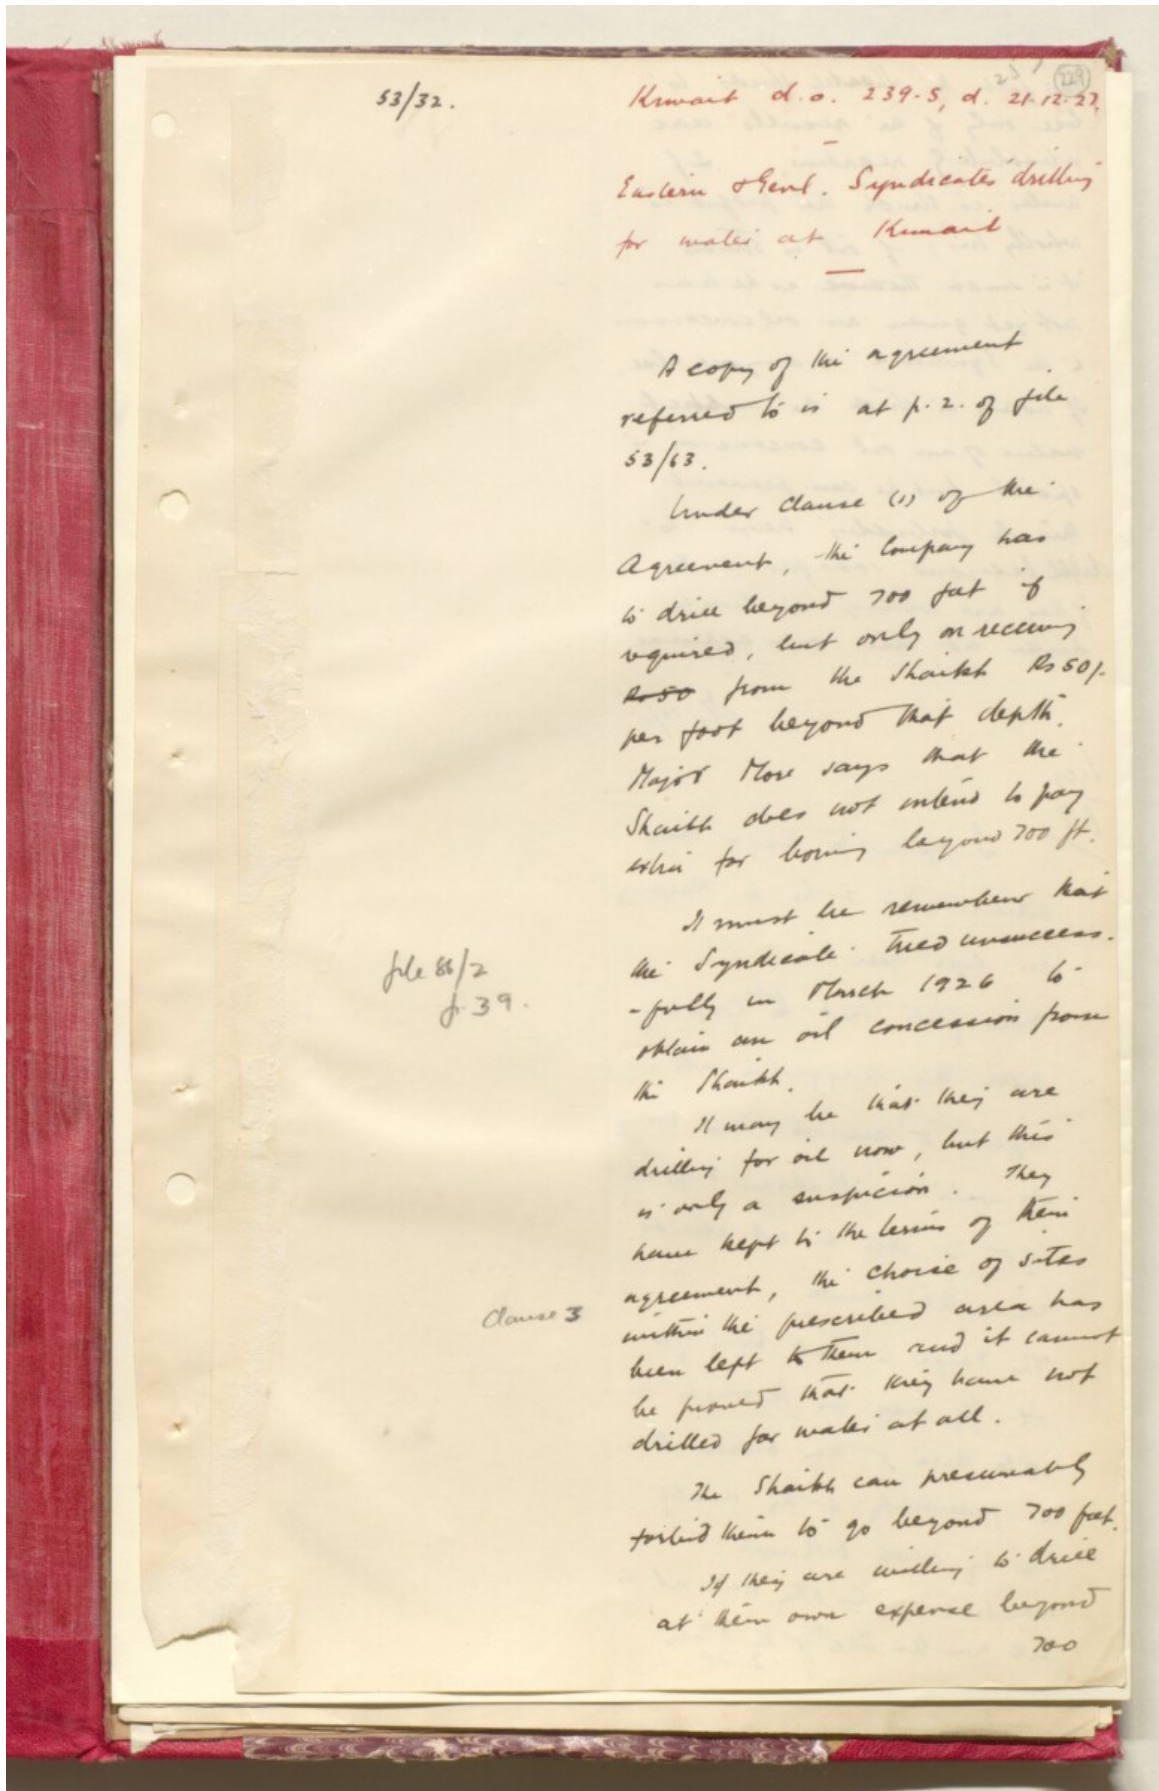 229
53/32.
Kuwait d.o. 239-S, d. 21.12.27.
Eastern & Genl. Syndicates drilling
for water at Kuwait
A copy of the agreement
referred to is at p. 2. of file
53/63.
Under clause (1) of the
Agreement, the Company has
to drill beyond 700 feet if
required, but only on receiving
Rs 50 from the Shaikh Rs 50/-
per foot beyond that depth.
Major More says that the
Shaikh does not intend to pay
extra for boring beyond 700 ft.
It must be remember that
file 86/2
p. 39.
the Syndicate tried unsuccess-
-fully in March 1926 to
obtain an oil concession from
the Shaikh.
It may be that they are
drilling for oil now, but this
is only a suspicion. They
have kept to the terms of their
agreement, the choice of sites
Clause 3
within the prescribed area has
been left to them and it cannot
be proved that they have not
drilled for water at all.
The Shaikh can presumably
forbid them to go beyond 700 feet.
If they are willing to drill
at their own expense beyond
700